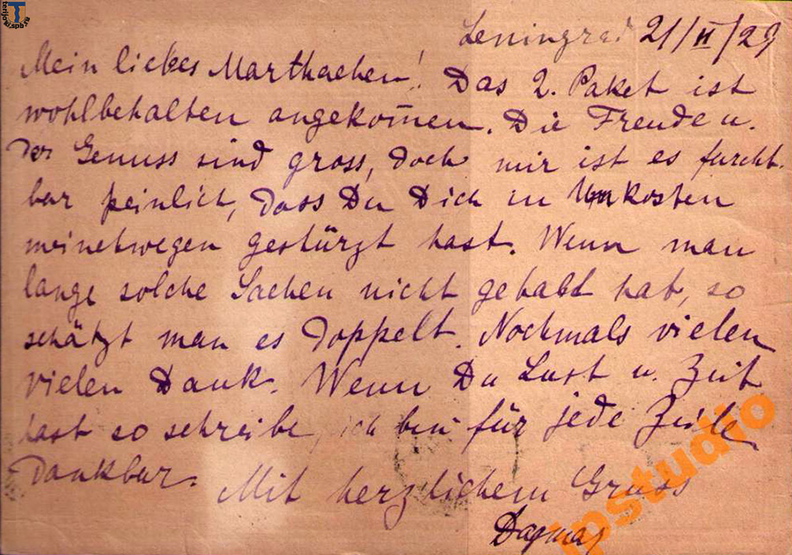 Leningrad 21/II/29
Mein liebes Marthachen! Das 2. Paket ist
wohlbehalten angekom̅en. Die Freude u.
der Genuss sind gross, doch mir ist es furcht-
bar peinlich, dass Du Dich in Unkosten
meinetwegen gestürzt hast. Wenn man
lange solche Sachen nicht gehabt hat, so
schätzt man es doppelt. Nochmals vielen
vielen Dank. Wenn Du Lust u. Zeit
hast so schreibe, ich bin für jede Zeile
dankbar.
Mit herzlichem Gruss
Dagmar
ipstudio